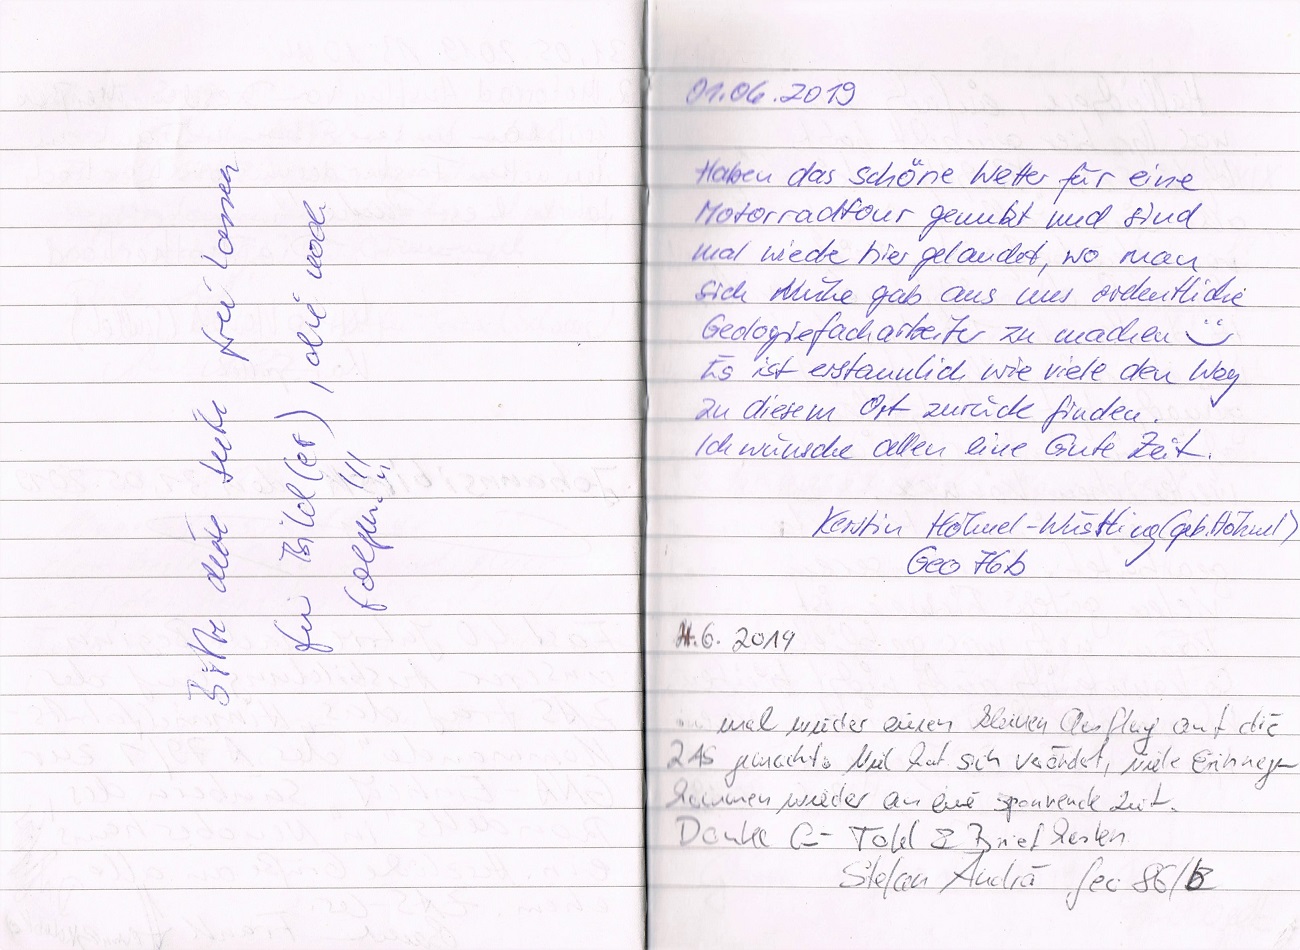 Bitte diese Seite frei lassen
für Bild(er), die noch
folgen!!!
01.06.2019
Haben das schöne Wetter für eine
Motorradtour genutzt und sind
mal wiede hier gelandet, wo man
sich Mühe gab aus uns ordentliche
Geologiefacharbeiter zu machen
Es ist erstaunlich wie viele den Weg
zu diesem Ort zurück finden.
Ich wünsche allen eine Gute Zeit.
Kerstin Höhnel-Wüstling (geb. Höhnel)
Geo 76b
4.6. 2019
mal wieder einen kleinen Ausflug auf die
ZAS gemacht. Viel hat sich verändert, viele Erinnegen
kommen wieder an eine spannende Zeit.
Danke Tafel & Briefkasten
Stefan André Geo 86/B